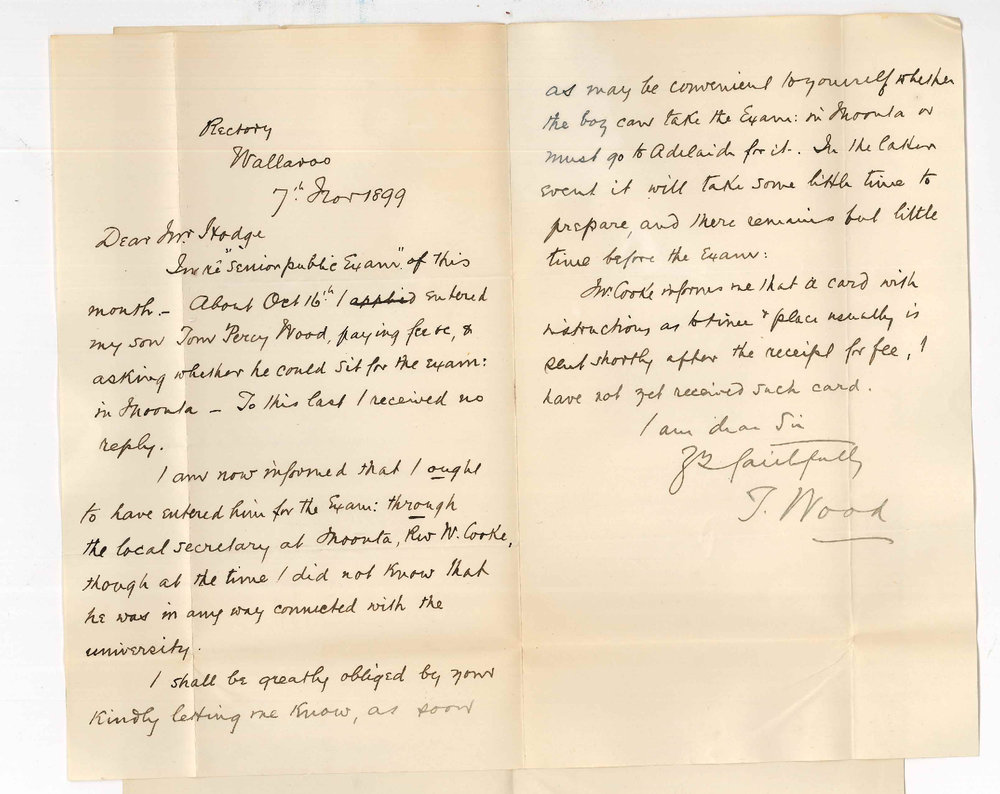 Rectory
Wallaroo
7th Nov 1899
Dear Mr Hodge
In re "Senior public Exam" of this
month. – About Oct 16th I applied entered
my son Tom Percy Wood, paying fee &c, &
asking whether he could sit for the exam:
in Moonta – To this last I received no
reply.
I am now informed that I ought
to have entered him for the Exam: through
the local secretary at Moonta, Rev W. Cooke,
though at the time I did not know that
he was in any way connected with the
university.
I shall be greatly obliged by your
kindly letting me know, as soon
as may be convenient to yourself whether
the boy can take the Exam: in Moonta or
must go to Adelaide for it. In the latter
event it will take some little time to
prepare, and there remains but little
time before the Exam:
Mr Cooke informs me that a card with
instructions as to time & place usually is
sent shortly after the receipt for fee, I
have not yet received such card.
I am dear Sir
Yrs faithfully
T. Wood